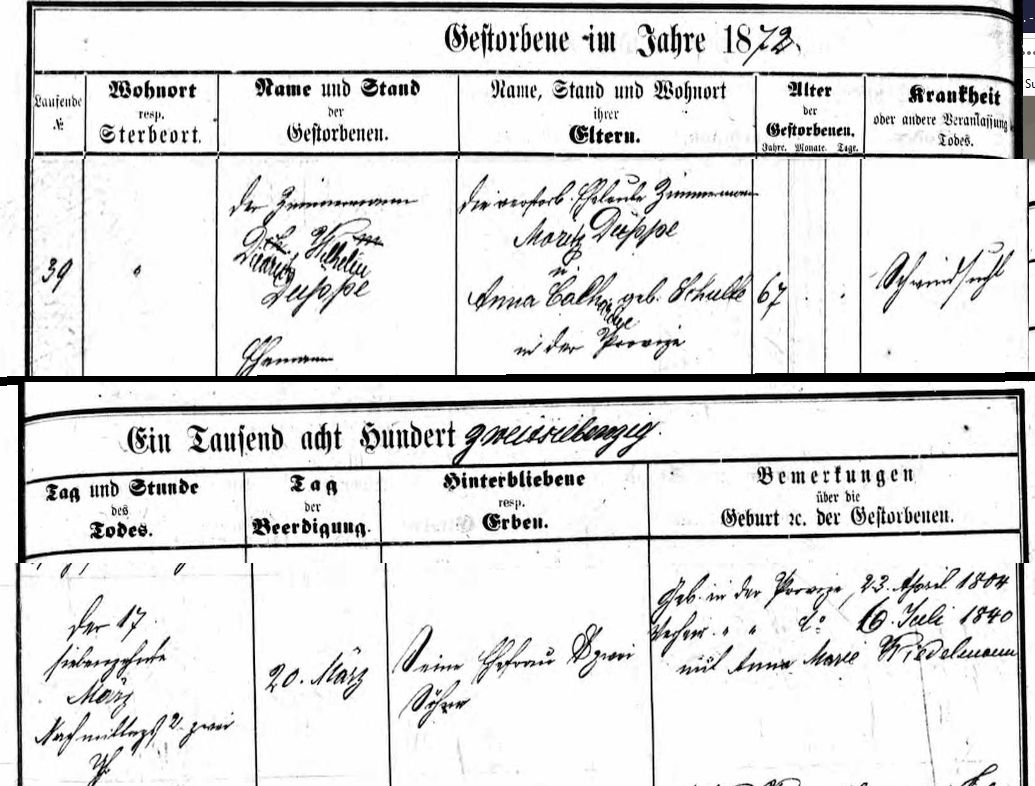 Gestorbene im Jahre 1872.
Laufende №
Wohnort
resp.
Sterbeort.
Name und Stand
der
Gestorbenen.
Name, Stand und Wohnort
ihrer
Eltern.
Alter
der
Gestorbenen.
Jahre. Monate. Tage.
Krankheit
oder andere Veranlassung
Todes.
39
"
der Zimmermann
Diedrich Wilhelm
Düppe
Ehemann
die verstorb. Eheleute Zimmermann
Moritz Düppe
u.
Anna Cath. geb. Schulte
in der Provinze
67 . .
Schwindsucht
Ein Tausend acht Hundert zweisiebenzig.
Tag und Stunde
des
Todes.
Tag
der
Beerdigung.
Hinterbliebene
resp.
Erben.
Bemerkungen
über die
Geburt ꝛc. der Gestorbenen.
der 17.
siebenzehnte
März
Nachmittags 2 zwei
Uhr
20. März
Seine Ehefrau & zwei
Söhne
Geb. in der 23. April 1804
" " do 16. Juli 1840
mit Anna Marie Wiedelmann